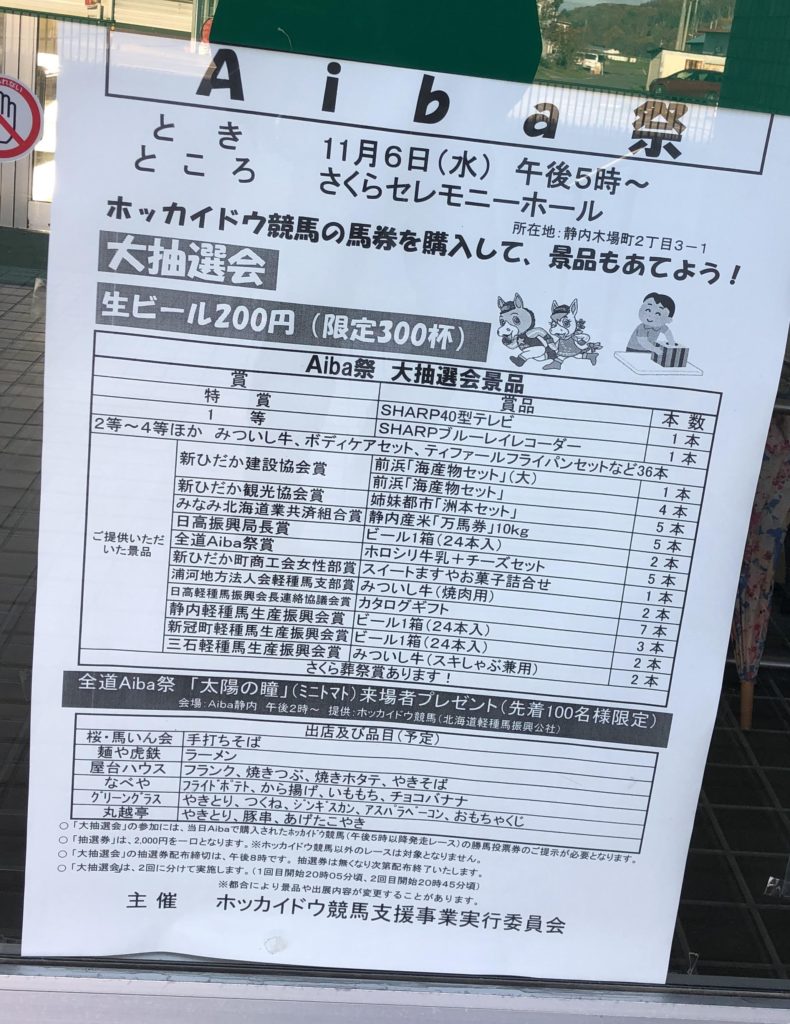 Aiba祭
とき 11月6日(水) 午後5時～
ところ さくらセレモニーホール
所在地:静内木場町2丁目3-1
ホッカイドウ競馬の馬券を購入して、景品もあてよう！
大抽選会
生ビール200円(限定300杯)
Aiba祭 大抽選会景品
賞 賞品 本数
特賞 SHARP40型テレビ 1本
1等 SHARPブルーレイレコーダー 1本
2等～4等ほか みついし牛、ボディケアセット、ティファールフライパンセットなど36本
ご提供いただいた景品
新ひだか建設協会賞 前浜「海産物セット」(大) 1本
新ひだか観光協会賞 前浜「海産物セット」 4本
みなみ北海道業共済組合賞 姉妹都市「洲本セット」 5本
日高振興局長賞 静内産米「万馬券」10kg 5本
全道Aiba祭賞 ビール1箱(24本入) 2本
新ひだか町商工会女性部賞 ホロシリ牛乳+チーズセット 5本
浦河地方法人会軽種馬支部賞 スイートますやお菓子詰合せ 1本
日高軽種馬振興会長連絡協議会賞 みついし牛(焼肉用) 2本
静内軽種馬生産振興会賞 カタログギフト 7本
新冠町軽種馬生産振興会賞 ビール1箱(24本入) 3本
三石軽種馬生産振興会賞 ビール1箱(24本入) 2本
みついし牛(スキしゃぶ兼用) 2本
さくら葬祭賞あります！
全道Aiba祭 「太陽の瞳」(ミニトマト)来場者プレゼント(先着100名様限定)
会場:Aiba静内 午後2時～ 提供:ホッカイドウ競馬(北海道軽種馬振興公社)
出店及び品目(予定)
桜・馬いん会 手打ちそば
麺や虎鉄 ラーメン
屋台ハウス フランク、焼きつぶ、焼きホタテ、やきそば
なべや フライドポテト、から揚げ、いももち、チョコバナナ
グリーングラス やきとり、つくね、ジンギスカン、アスパラベーコン、おもちゃくじ
丸越亭 やきとり、豚串、あげたこやき
○「大抽選会」の参加には、当日Aibaで購入されたホッカイドウ競馬(午後5時以降発走レース)の勝馬投票券のご提示が必要となります。
○「抽選券」は、2,000円を一口となります。※ホッカイドウ競馬以外のレースは対象となりません。
○「大抽選会」の抽選券配布締切は、午後8時です。抽選券は無くなり次第配布終了いたします。
○「大抽選会」は、2回に分けて実施します。(1回目開始20時05分頃、2回目開始20時45分頃)
※都合により景品や出展内容が変更することがあります。
主催 ホッカイドウ競馬支援事業実行委員会